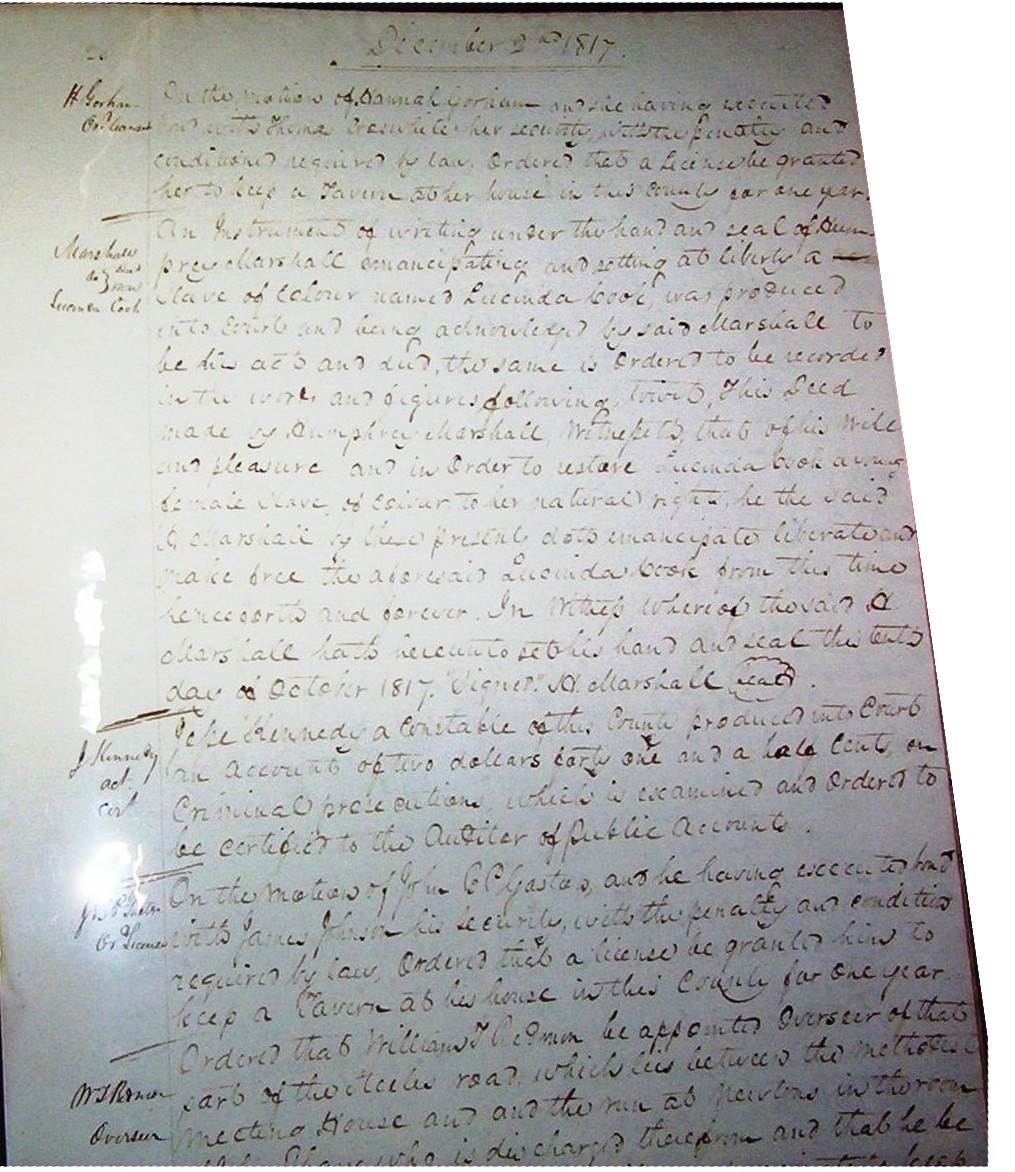 December 2nd 1817.
H Gorham
On the motion of Hannah Gorham and she having executed
bond with Thomas Creswhite her security, with the penalty and
conditions required by law. Ordered that a License be granted
her to keep a Tavern at her house in this County for one year.
Marshall
deed
Lucinda Cook
An Instrument of writing under the hand and seal of Hum
prey Marshall emancipating and setting at liberty a
Slave of Colour named Lucinda Cook, was produced
into Court and being acknowledged by said Marshall to
be his act and deed, the same is Ordered to be recorded
in the words and figures following, towit, This Deed
made by Humphrey Marshall, Witnesseth, that of his Will
and pleasure and in Order to restore Lucinda Cook a young
female Slave, of colour to her natural rights, he the said
H Marshall by these presents doth emancipate liberate and
make free the aforesaid Lucinda Cook from this time
henceforth and forever. In Witness whereof the said H.
Marshall hath hereunto set his hand and seal the tenth
day of October 1817. "Signed" H. Marshall (seal).
J Kennedy
act
cert
Jesse Kennedy a Constable of this County produced into Court
an Account of two dollars forty one and a half Cents, on
Criminal prosecutions, which is examined and Ordered to
be certified to the Auditor of Public Accounts.
On the motion of John P Gaston, and he having executed bond
with James Jhnson his security, with the penalty and condition
required by law, Ordered that a license be granted him to
keep a Tavern at his house in this County for one year.
Wm T Redmon
Overseer
Ordered that William T Redmon be appointed Overseer of that
part of the Steeles road, which lies between the Methodest
Meeting House and and the run at Newtons in the room
who is discharged therefrom and that he be